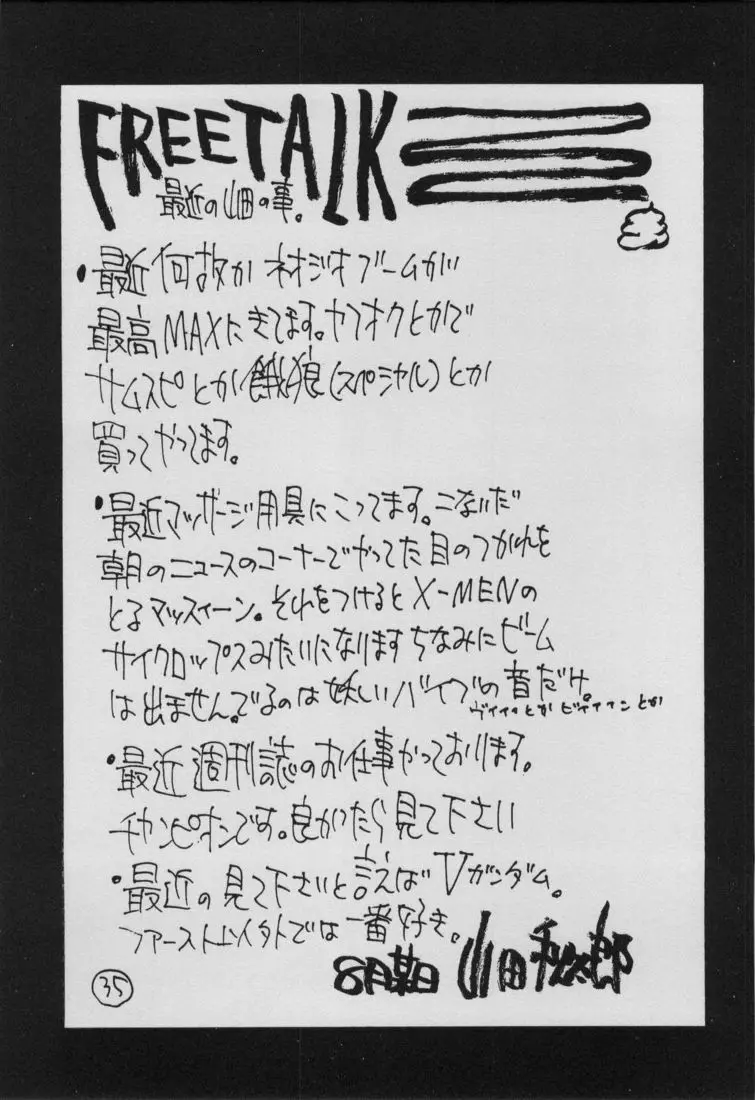 FREETALK
最近の山田の事。
・最近何故かネオジオブームが
最高MAXにきてます。ヤフオクとかで
サムスピとか餓狼(スペシャル)とか
買ってやってます。
・最近マッサージ用具にこってます。こないだ
朝のニュースのコーナーでやってた目のつかれを
とるマッスィーン。それをつけるとX-MENの
サイクロップスみたいになりますちなみにビーム
は出ません。でるのは妖しいバイブの音だけ。
ヴィイイとかビイイインとか
・最近週刊誌のお仕事やっております。
チャンピオンです。良かったら見て下さい
・最近の見て下さいと言えばVガンダム。
ファースト以外では一番好き。
8月某日 山田
35